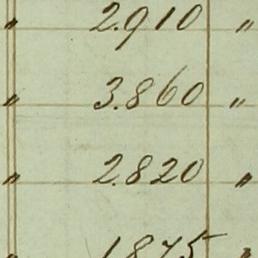 " 2.910 "
" 3.860 "
" 2.820 "
" 1.875 "